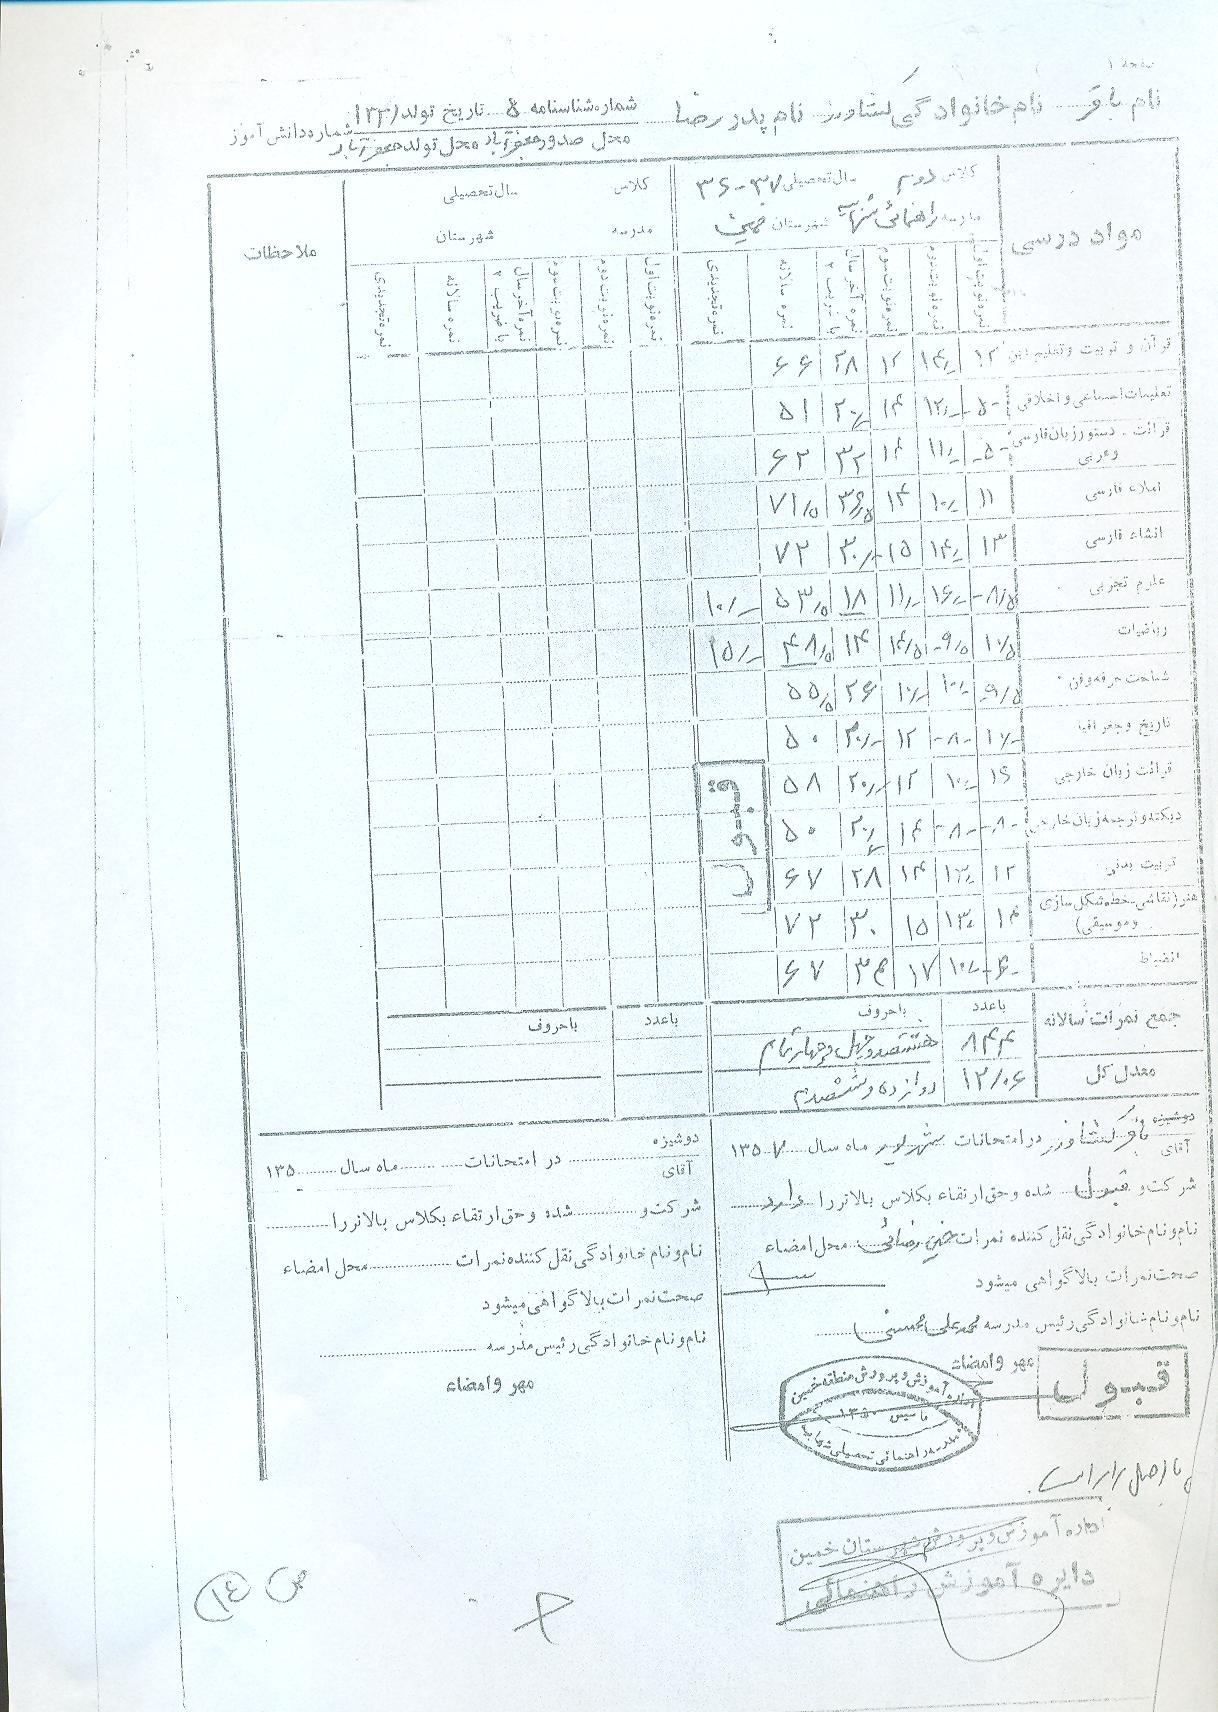 صفحه ۱
نام باقر نام خانوادگی کشاورز نام پدر رضا شماره شناسنامه ۵ تاریخ تولد شماره دانش آموز
محل صدور جعفرآباد محل تولد جعفرآباد
مواد درسی کلاس دوم سال تحصیلی ۳۷-۳۶ کلاس سال تحصیلی ملاحظات
مدرسه راهنمائی شهرستان خمین مدرسه شهرستان
نمره نوبت اول نمره نوبت دوم نمره نوبت سوم نمره آخر سال با ضریب ۲ نمره سالانه نمره تجدیدی نمره نوبت اول نمره نوبت دوم نمره نوبت سوم نمره آخر سال با ضریب ۲ نمره سالانه نمره تجدیدی
قرآن و تربیت و تعلیم دین ۱۲ ۱۴/- ۱۲ ۲۸ ۶۶
تعلیمات اجتماعی و اخلاقی -۵- ۱۲/- ۱۴ ۲۰/- ۵۱
قرائت - دستور زبان فارسی و عربی -۵- ۱۱/- ۱۴ ۳۲ ۶۲
املاء فارسی ۱۱ ۱۰/- ۱۴ ۳۶/۵ ۷۱/۵
انشاء فارسی ۱۳ ۱۴/- ۱۵ ۳۰/- ۷۲
علوم تجربی ۸/۵ ۱۶/- ۱۱/- ۱۸ ۵۳/۵ ۱۰/-
ریاضیات ۱۰/۵ ۹/۵ ۱۴/۵ ۱۴ ۴۸/۵ ۱۵/-
شناخت حرفه و فن ۹/۵ ۱۰/- ۱۰/- ۲۶ ۵۵/۵
تاریخ و جغرافیا ۱۰/- -۸- ۱۲ ۲۰/- ۵۰
قرائت زبان خارجی ۱۶ ۱۰/- ۱۲ ۲۰/- ۵۸
دیکته و ترجمه زبان خارجی -۸- -۸- ۱۴ ۲۰/- ۵۰
تربیت بدنی ۱۲ ۱۳/- ۱۴ ۲۸ ۶۷
هنر (نقاشی - خط - شکل سازی و موسیقی) ۱۴ ۱۳/- ۱۵ ۳۰ ۷۲
انضباط -۴- ۱۰/- ۱۷ ۳۶ ۶۷
قبول
جمع نمرات سالانه با عدد با حروف با عدد با حروف
۸۴۴ هشتصد و چهل و چهار تمام
معدل کل ۱۲/۰۶ دوازده و شش صدم
دوشیزه
آقای باقر کشاورز در امتحانات شهریور ماه سال ۱۳۵۷
شرکت و قبول شده و حق ارتقاء بکلاس بالاتر را دارد
نام و نام خانوادگی نقل کننده نمرات رضائی محل امضاء
صحت نمرات بالا گواهی میشود
نام و نام خانوادگی رئیس مدرسه محمد علی محسنی
مهر و امضاء
قبول
اداره آموزش و پرورش منطقه خمین
تاسیس ۱۳۵۰
مدرسه راهنمائی تحصیلی
دوشیزه
آقای در امتحانات ماه سال ۱۳۵
شرکت و شده و حق ارتقاء بکلاس بالاتر را
نام و نام خانوادگی نقل کننده نمرات محل امضاء
صحت نمرات بالا گواهی میشود
نام و نام خانوادگی رئیس مدرسه
مهر و امضاء
با اصل برابر است
اداره آموزش و پرورش شهرستان خمین
دایره آموزش راهنمائی
ص ۱۴